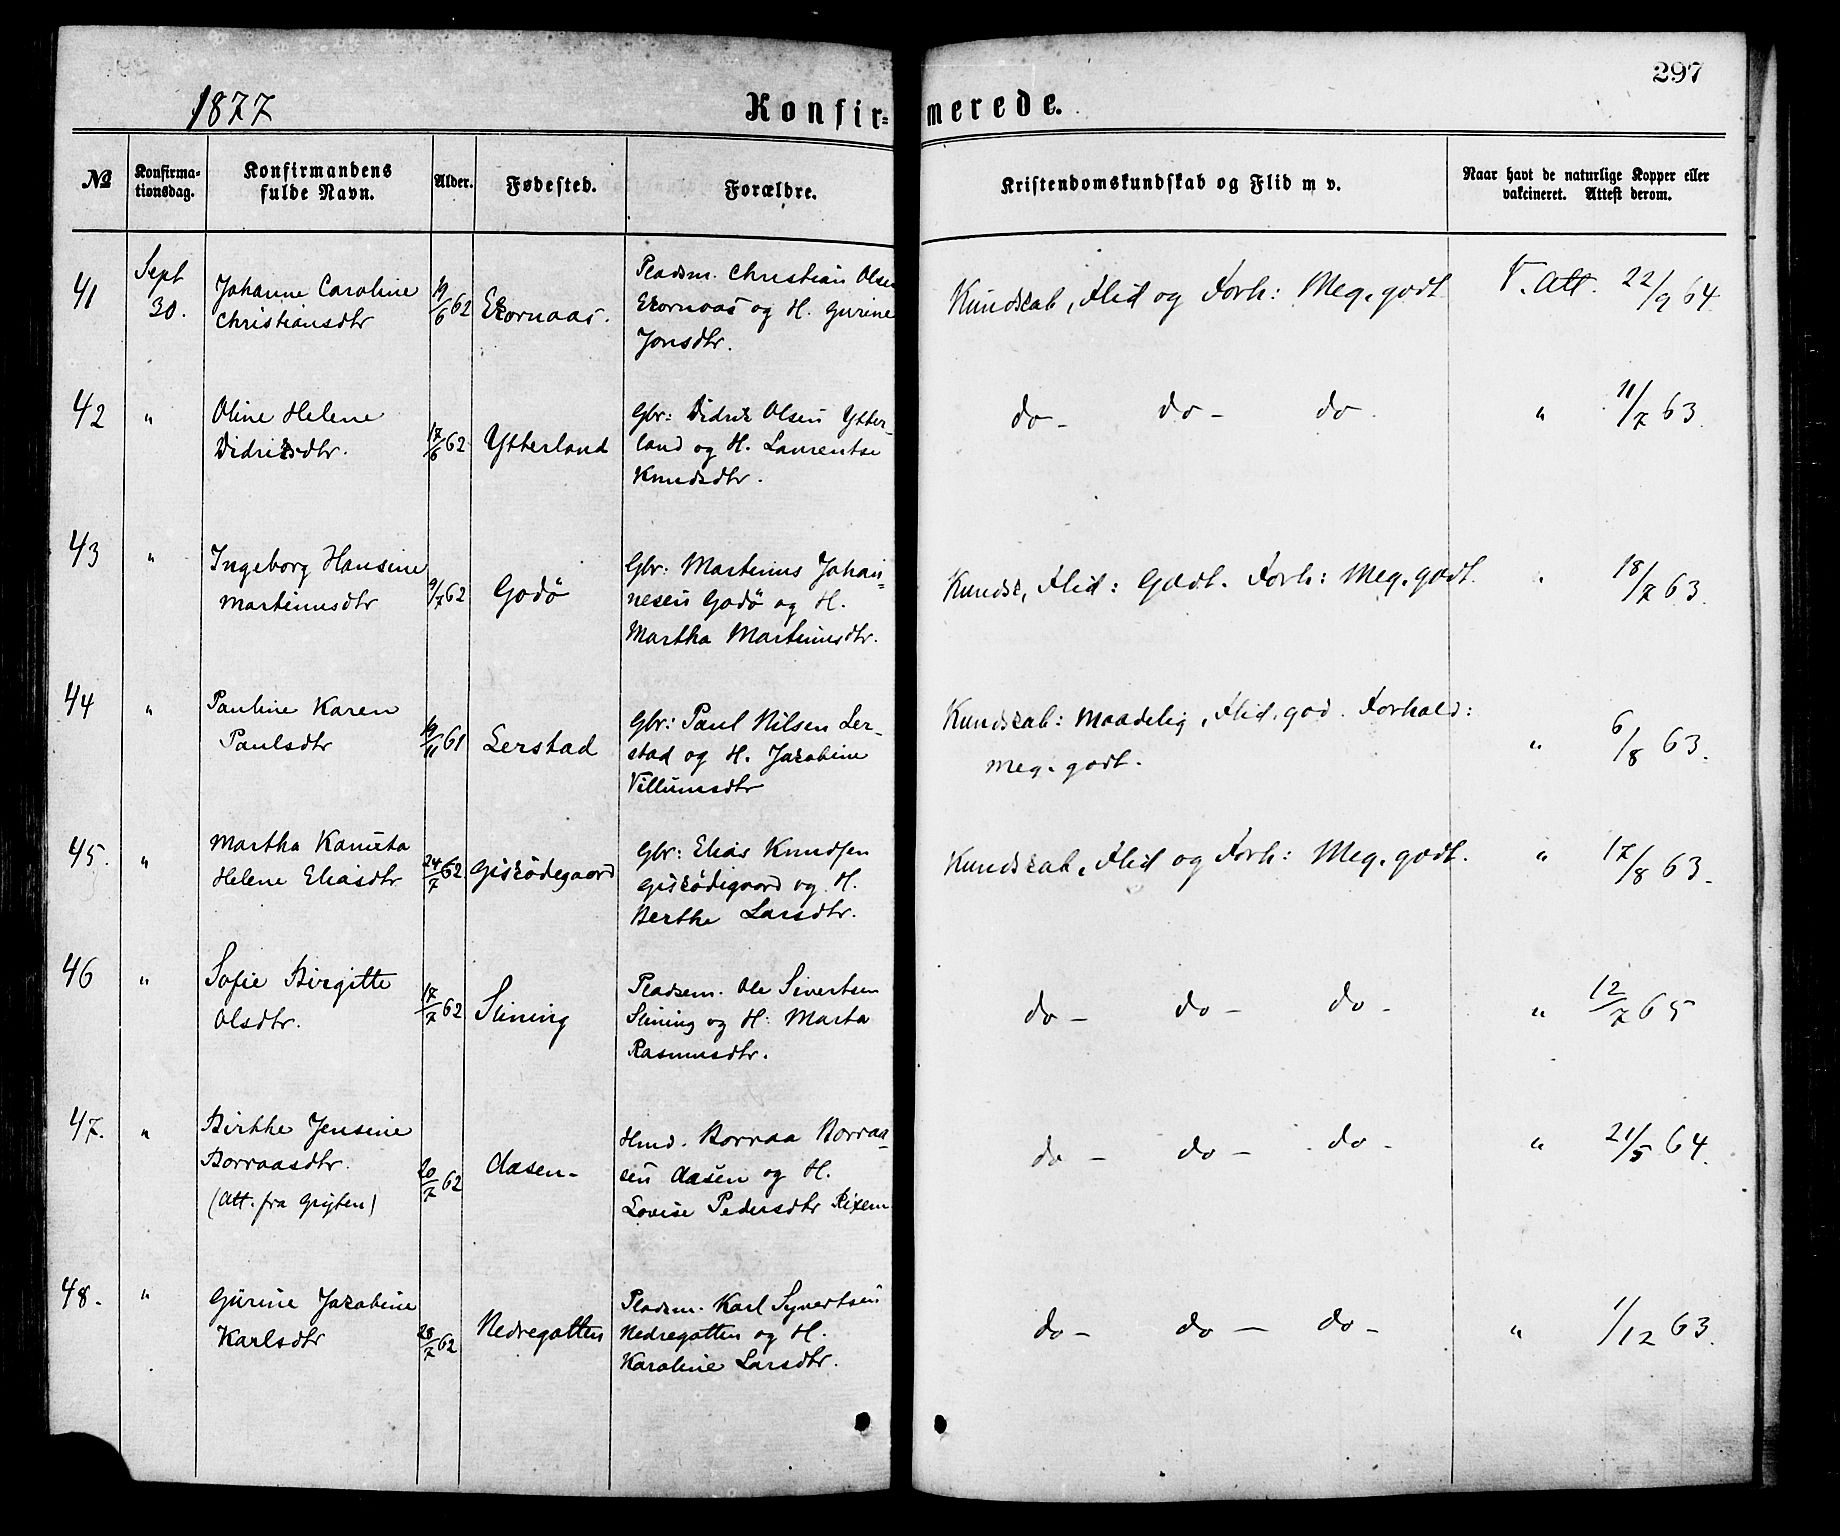 297
1877 Konfirmerede.
No Konfirmationsdag. Konfirmandens fulde Navn. Alder. Fødested. Forældre. Kristendomskundskab og Flid m v. Naar havt de naturlige Kopper eller vakcineret. Attest derom.
41 Sept 30. Johanne Caroline Christiansdtr 19/6 62 Ekornaas. Pladsm. Christian Olsen Ekornaas og H. Gurine Jonsdtr. Kundskab, Flid og Forh: Meg. godt V. Att. 22/9 64
42 " Oline Helene Didriksdtr. 17/6 62 Ytterland Gbr: Didrik Olsen Ytterland og H. Laurentse Knudsdtr. do - do - do. " 11/7 63.
43 " Ingeborg Hansine Martinusdtr 9/7 62 Godø Gbr: Martinus Johannesen Godø og H. Martha Martinusdtr. Kundsk, Flid: Godt. Forh: Meg. godt. " 18/7 63.
44 " Pauline Karen Paulsdtr 19/11 61 Lerstad Gbr: Paul Nilsen Lerstad og H. Jakobine Villumsdtr Kundskab: Maadelig, Flid. god. Forhold: Meg. godt. " 6/8 63.
45. " Martha Kanuta Helene Eliasdtr 24/7 62 Giskødegaard Gbr: Elias Knudsen Giskødegaard og H. Berthe Larsdtr. Kundskab, Flid og Forh: Meg. godt. " 17/8 63.
46 " Sofie Birgitte Olsdtr. 17/7 62 Slining Pladsem. Ole Sivertsen Slining og H: Marta Rasmusdtr. do - do - do - " 12/7 65
47. " Birthe Jensine Borraasdtr. (Att. fra Gryten) 20/7 62 Aasen - Hmd. Borraa Borraasen Aasen og H. Lovise Pedersdtr Rixem do - do - do - " 21/5 64.
48. " Gurine Jakobine Karlsdtr 28/7 62 Nedregotten Pladsm. Karl Synertsen Nedregotten og H. Karoline Larsdtr. do - do - do - " 1/12 63.